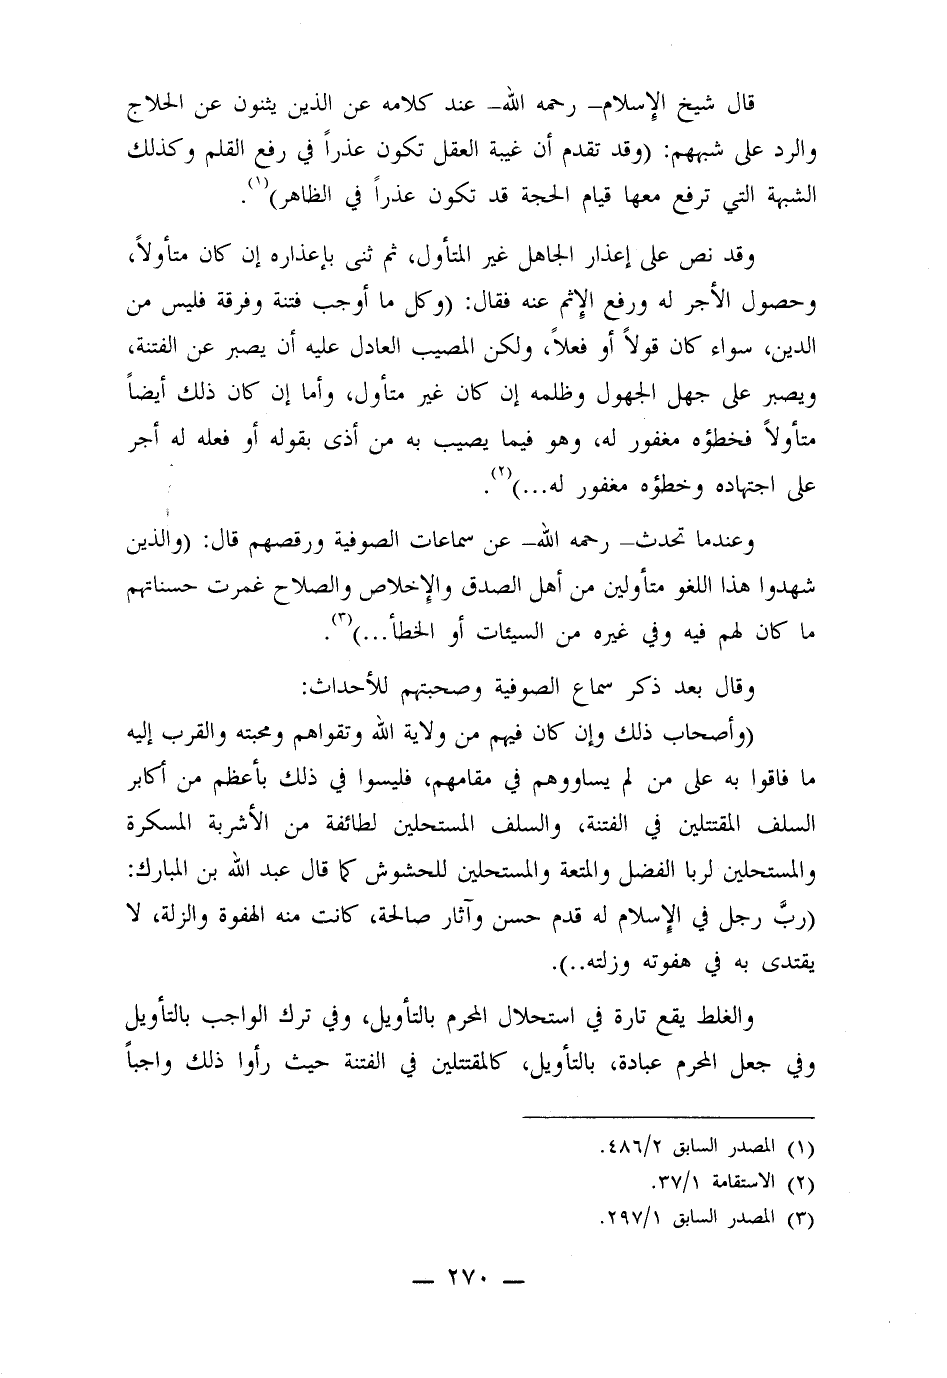 قال شيخ الإسلام– رحمه الله– عند كلامه عن الذين يثنون عن الحلاج
والرد على شبههم: (وقد تقدم أن غيبة العقل تكون عذراً في رفع القلم وكذلك
الشبهة التي ترفع معها قيام الحجة قد تكون عذراً في الظاهر)(١).
وقد نص على إعذار الجاهل غير المتأول، ثم ثنى بإعذاره إن كان متأولاً،
وحصول الأجر له ورفع الإثم عنه فقال: (وكل ما أوجب فتنة وفرقة فليس من
الدين، سواء كان قولاً أو فعلاً، ولكن المصيب العادل عليه أن يصبر عن الفتنة،
ويصبر على جهل الجهول وظلمه إن كان غير متأول، وأما إن كان ذلك أيضاً
متأولاً فخطؤه مغفور له، وهو فيما يصيب به من أذى بقوله أو فعله له أجر
على اجتهاده وخطؤه مغفور له...)(٢).
وعندما تحدث– رحمه الله– عن سماعات الصوفية ورقصهم قال: (والذين
شهدوا هذا اللغو متأولين من أهل الصدق والإخلاص والصلاح غمرت حسناتهم
ما كان لهم فيه وفي غيره من السيئات أو الخطأ...)(٣).
وقال بعد ذكر سماع الصوفية وصحبتهم للأحداث:
(وأصحاب ذلك وإن كان فيهم من ولاية الله وتقواهم ومحبته والقرب إليه
ما فاقوا به على من لم يساووهم في مقامهم، فليسوا في ذلك بأعظم من أكابر
السلف المقتتلين في الفتنة، والسلف المستحلين لطائفة من الأشربة المسكرة
والمستحلين لربا الفضل والمتعة والمستحلين للحشوش كما قال عبد الله بن المبارك:
(ربَّ رجل في الإسلام له قدم حسن وآثار صالحة، كانت منه الهفوة والزلة، لا
يقتدى به في هفوته وزلته..).
والغلط يقع تارة في استحلال المحرم بالتأويل، وفي ترك الواجب بالتأويل
وفي جعل المحرم عبادة، بالتأويل، كالمقتتلين في الفتنة حيث رأوا ذلك واجباً
(١) المصدر السابق ٤٨٦/٢.
(٢) الاستقامة ٣٧/١.
(٣) المصدر السابق ٢٩٧/١.
— ٢٧٠ —